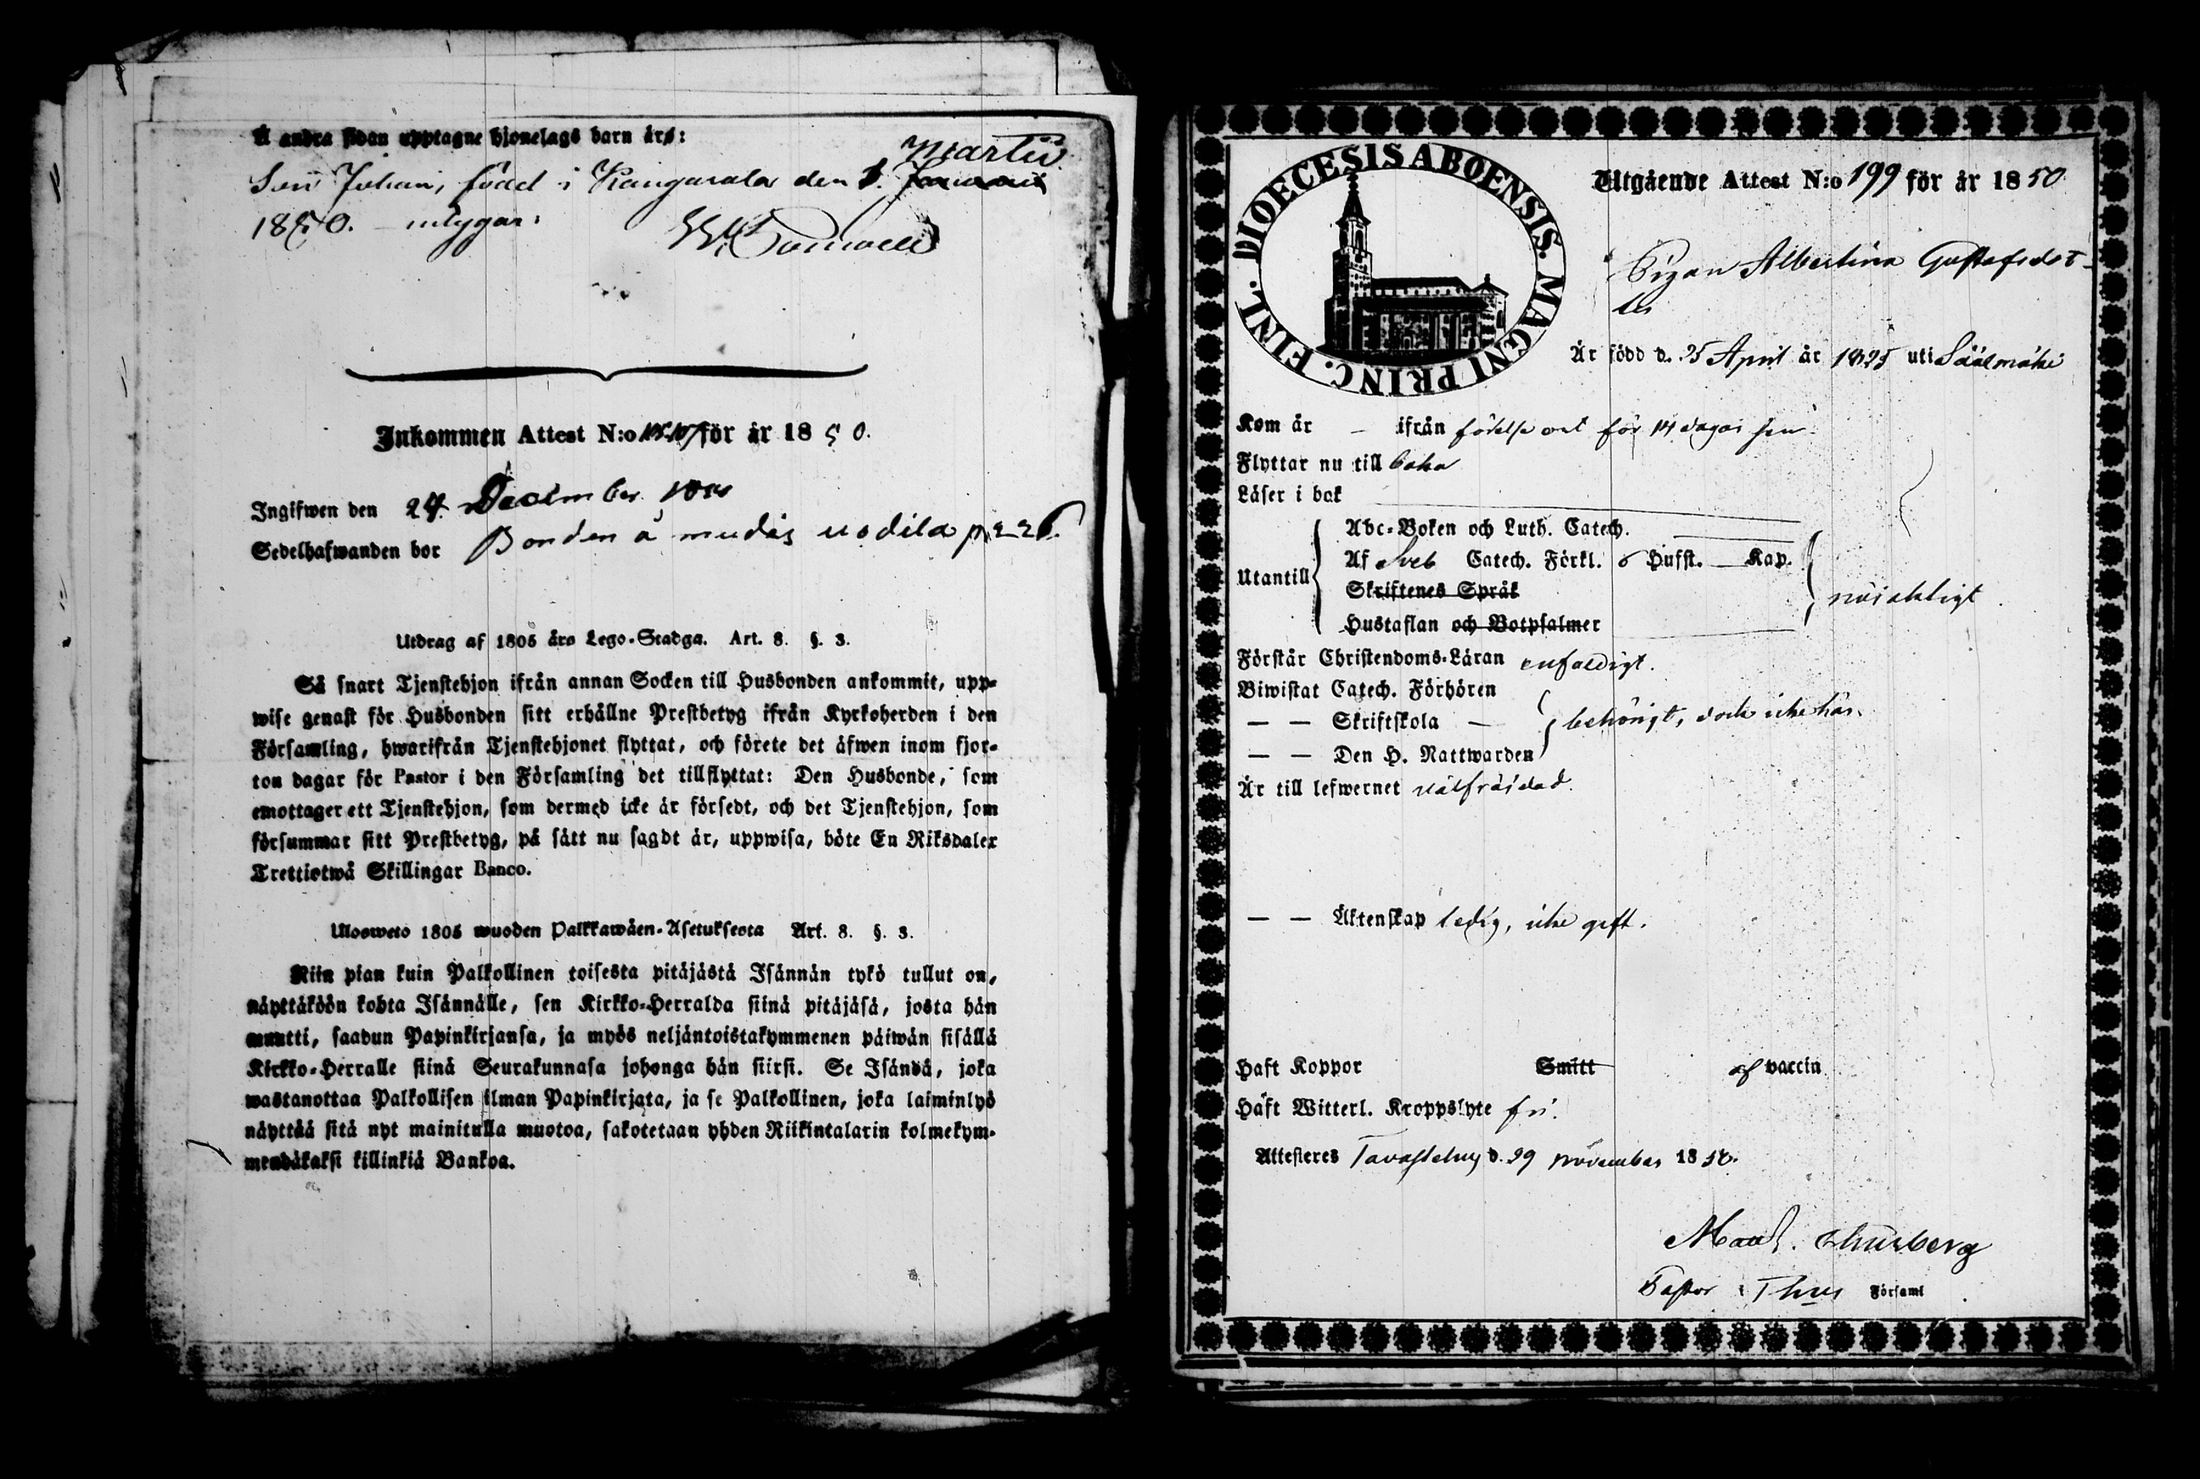 Å andra sidan upptagne hjonelags barn äro:
Martii
Son Johan, född i Kangasala den 1. Januari
1850. intygar:
Inkommen Attest N:o för år 1850.
Ingifwen den 24 December
Sedelhafwanden bor Bonden å p. 226.
Utdrag af 1805 års Lego-Stadga. Art. 8. §. 3.
Så snart Tjenstehjon ifrån annan Socken till Husbonden ankommit, upp-
wise genast för Husbonden sitt erhållne Prestbetyg ifrån Kyrkoherden i den
Församling, hwarifrån Tjenstehjonet flyttat, och förete det äfwen inom fjor-
ton dagar för Pastor i den Församling det tillflyttat: Den Husbonde, som
emottager ett Tjenstehjon, som dermed icke är försedt, och det Tjenstehjon, som
försummar sitt Prestbetyg, på sätt nu sagdt är, uppwisa, böte En Riksdaler
Trettiotwå Skillingar Banco.
Uloswetö 1805 wuoden Palkkawäen-Asetuksesta Art. 8. §. 3.
Niin pian kuin Palkollinen toisesta pitäjästä Isännän tykö tullut on,
näyttäköön kohta Isännälle, sen Kirkko-Herralda siinä pitäjäsä, josta hän
muutti, saadun Papinkirjansa, ja myös neljäntoistakymmenen päiwän sisällä
Kirkko-Herralle siinä Seurakunnasa johonga hän siirsi. Se Isändä, joka
wastanottaa Palkollisen ilman Papinkirjata, ja se Palkollinen, joka laiminlyö
näyttää sitä nyt mainitulla muotoa, sakotetaan yhden Riikintalarin kolmekym-
mendäkaksi killinkiä Bankoa.
DIOECESIS ABOENSIS. MAGNI PRINC. FINL.
Utgående Attest N:o 199 för år 1850
Pigan Albertina Gustafsdot-
ter
Är född d. 25 April år 1825 uti Sääksmäki
Kom år – ifrån födelse ort för 14 dagar sen
Flyttar nu till baka
Läser i bok
Abc-Boken och Luth. Catech.
Utantill Af Sveb Catech. Förkl. o Hufst. Kap.
Skriftenes Språk
Hustaflan och Botpsalmer
nöjaktigt
Förstår Christendoms-Läran enfaldigt.
Biwistat Catech. Förhören
— — Skriftskola — behörigt, dock icke här.
— — Den H. Nattwarden
Är till lefwernet wälfräjdad.
— — Äktenskap ledig, icke gift.
Haft Koppor Smitt af vaccin
Haft Witterl. Kroppslyte fri.
Attesteres Tavastehus d. 29 november 1850.
Pastor i Thus Församl